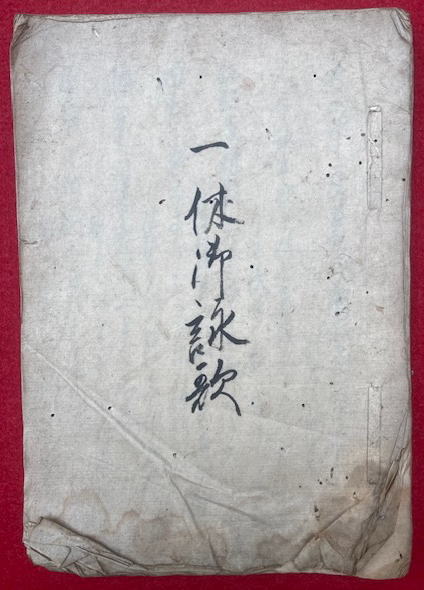 一休御詠歌